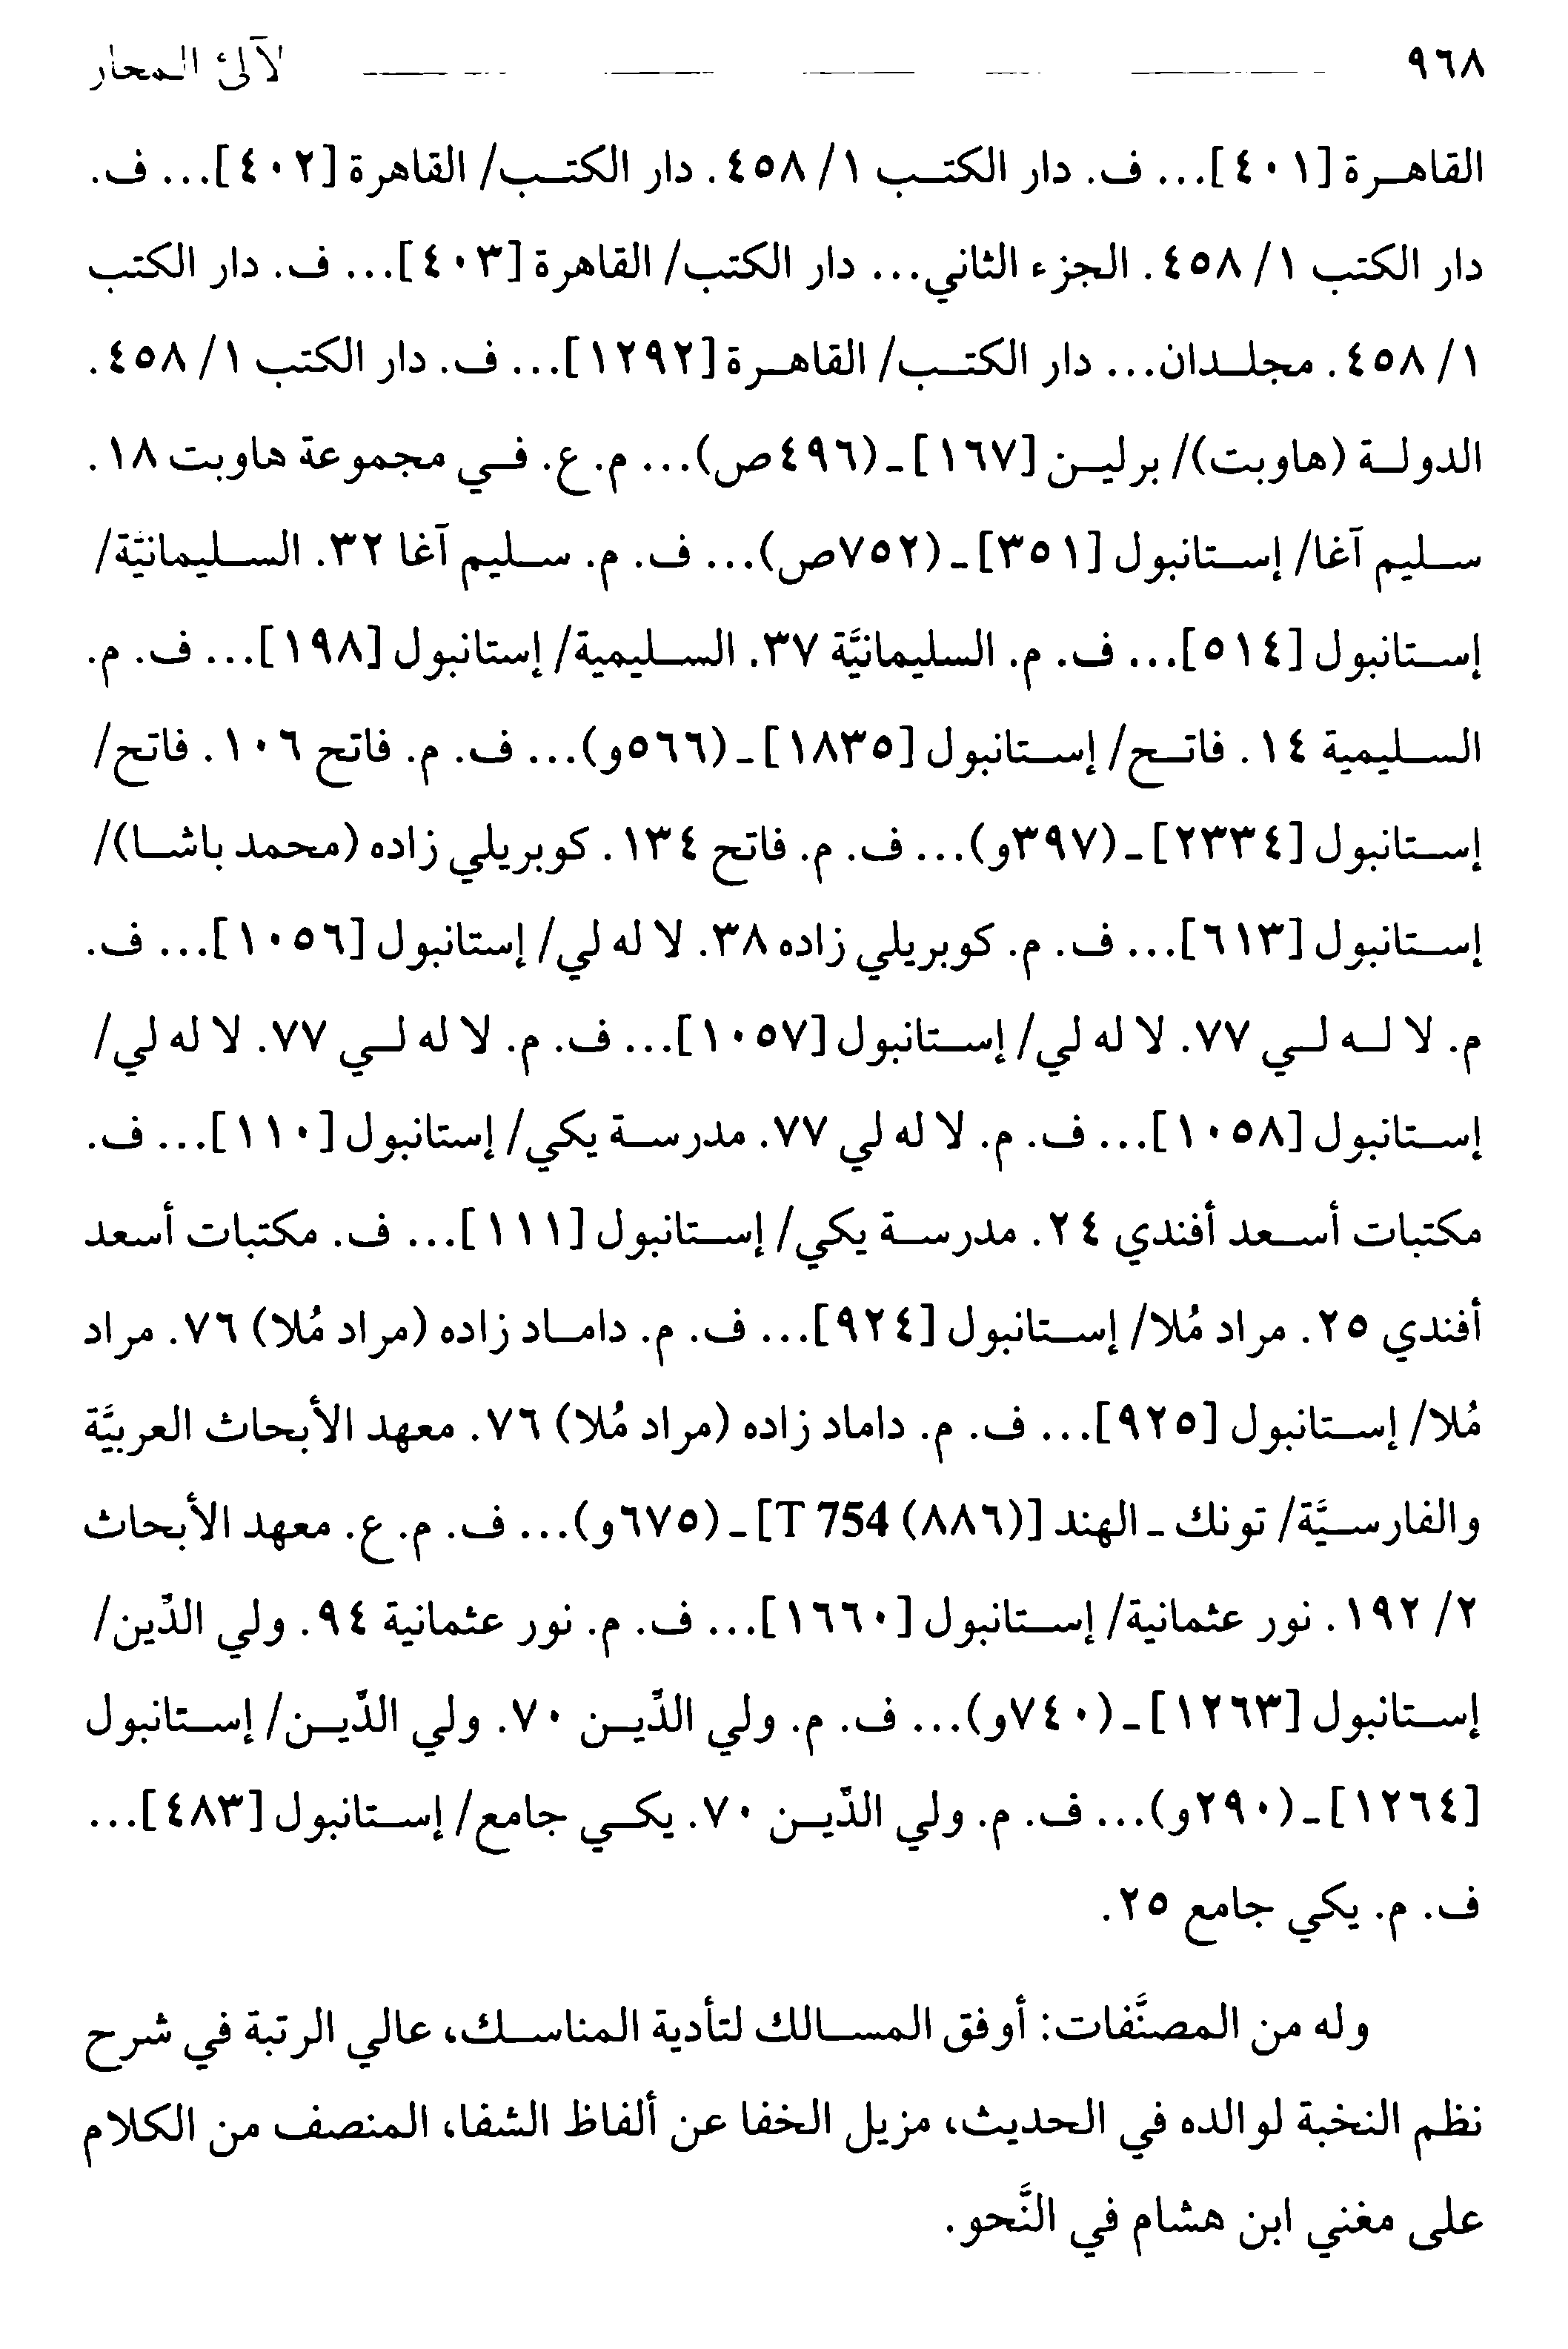 ٩٦٨ لآلئ المحار
القاهرة [٤٠١]... ف. دار الكتب ١/ ٤٥٨. دار الكتب/ القاهرة [٤٠٢]... ف.
دار الكتب ١/ ٤٥٨. الجزء الثاني... دار الكتب/ القاهرة [٤٠٣]... ف. دار الكتب
١/ ٤٥٨. مجلدان... دار الكتب/ القاهرة [١٢٩٢]... ف. دار الكتب ١/ ٤٥٨.
الدولة (هاوبت)/ برلين [١٦٧] ـ (٤٩٦ص)... م. ع. في مجموعة هاوبت ١٨.
سليم آغا/ إستانبول [٣٥١] ـ (٧٥٢ص)... ف. م. سليم آغا ٣٢. السليمانيَّة/
إستانبول [٥١٤]... ف. م. السليمانيَّة ٣٧. السليمية/ إستانبول [١٩٨]... ف. م.
السليمية ١٤. فاتح/ إستانبول [١٨٣٥] ـ (٥٦٦و)... ف. م. فاتح ١٠٦. فاتح/
إستانبول [٢٣٣٤] ـ (٣٩٧و)... ف. م. فاتح ١٣٤. كوبريلي زاده (محمد باشا)/
إستانبول [٦١٣]... ف. م. كوبريلي زاده ٣٨. لا له لي/ إستانبول [١٠٥٦]... ف.
م. لا له لي ٧٧. لا له لي/ إستانبول [١٠٥٧]... ف. م. لا له لي ٧٧. لا له لي/
إستانبول [١٠٥٨]... ف. م. لا له لي ٧٧. مدرسة يكي/ إستانبول [١١٠]... ف.
مكتبات أسعد أفندي ٢٤. مدرسة يكي/ إستانبول [١١١]... ف. مكتبات أسعد
أفندي ٢٥. مراد مُلا/ إستانبول [٩٢٤]... ف. م. داماد زاده (مراد مُلا) ٧٦. مراد
مُلا/ إستانبول [٩٢٥]... ف. م. داماد زاده (مراد مُلا) ٧٦. معهد الأبحاث العربيَّة
والفارسيَّة/ تونك ـ الهند [T 754 (٨٨٦)] ـ (٦٧٥و)... ف. م. ع. معهد الأبحاث
٢/ ١٩٢. نور عثمانية/ إستانبول [١٦٦٠]... ف. م. نور عثمانية ٩٤. ولي الدِّين/
إستانبول [١٢٦٣] ـ (٧٤٠و)... ف. م. ولي الدِّين ٧٠. ولي الدِّين/ إستانبول
[١٢٦٤] ـ (٢٩٠و)... ف. م. ولي الدِّين ٧٠. يكي جامع/ إستانبول [٤٨٣]...
ف. م. يكي جامع ٢٥.
وله من المصنَّفات: أوفق المسالك لتأدية المناسك، عالي الرتبة في شرح
نظم النخبة لوالده في الحديث، مزيل الخفا عن ألفاظ الشفا، المنصف من الكلام
على مغني ابن هشام في النَّحو.